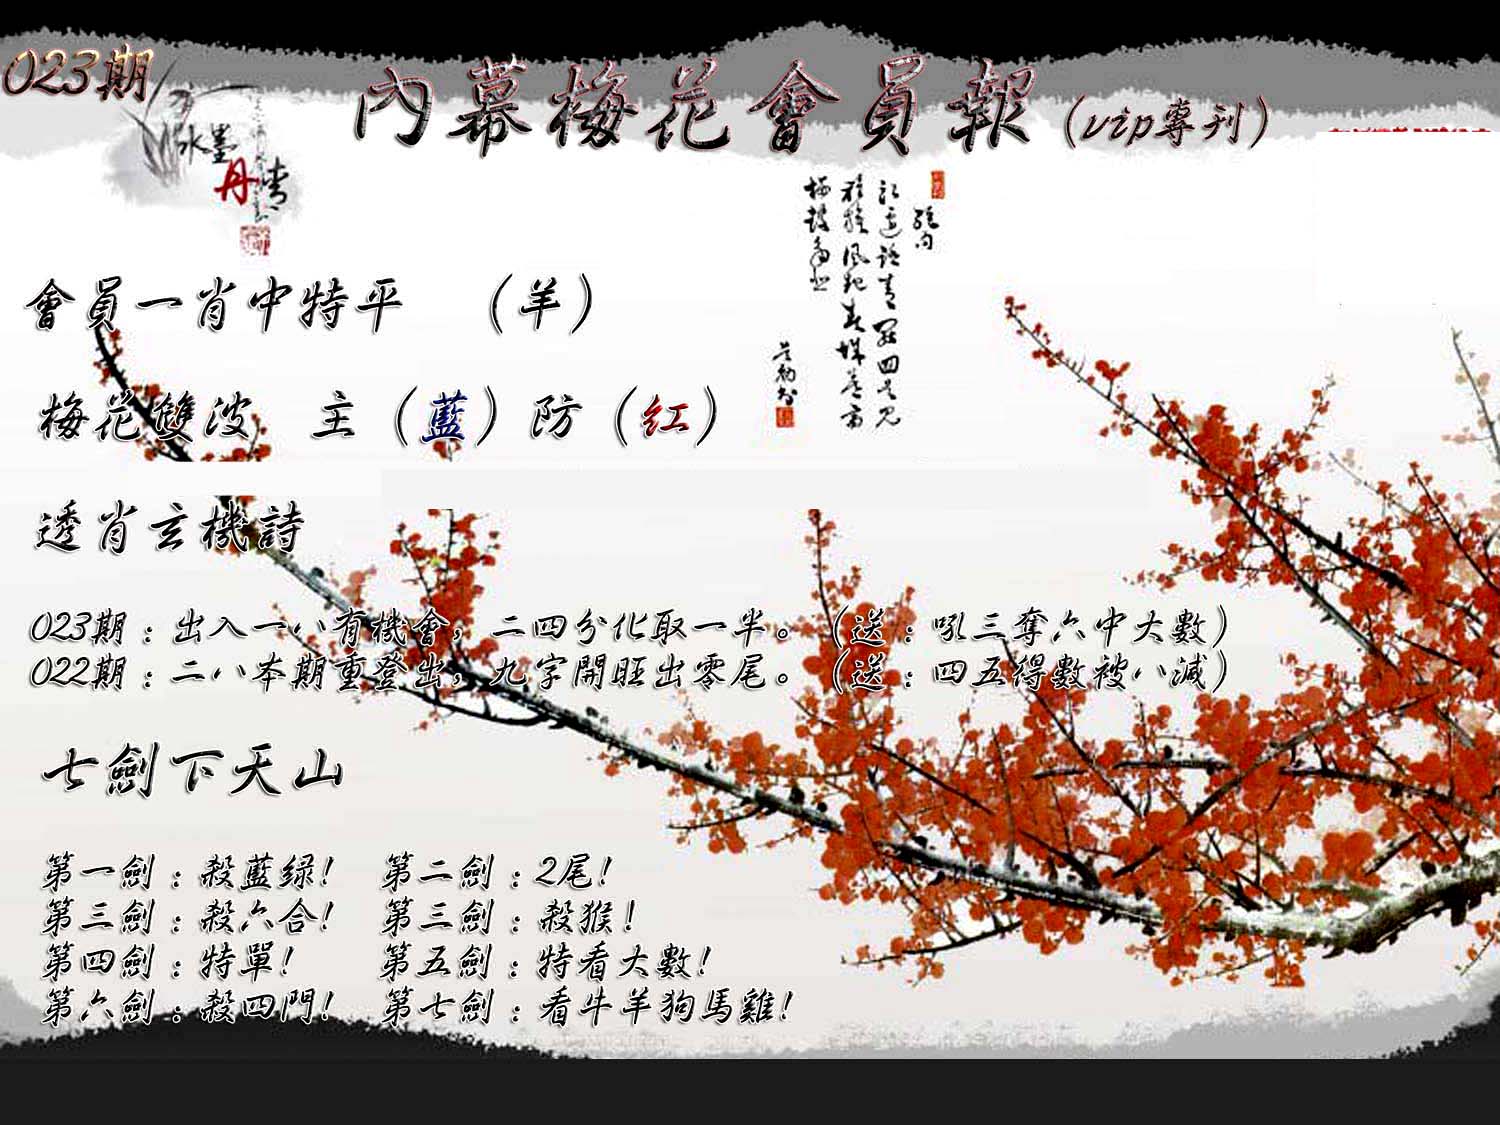 023期
內幕梅花會員報(vip專刊)
水墨
丹青
會員一肖中特平 (羊)
梅花雙波 主(藍)防(紅)
透肖玄機詩
023期:出入一八有機會,二四分化取一半。(送:吼三奪六中大數)
022期:二八本期重登出,九字開旺出零尾。(送:四五得數被八減)
七劍下天山
第一劍:殺藍绿! 第二劍:2尾!
第三劍:殺六合! 第三劍:殺猴!
第四劍:特單! 第五劍:特看大數!
第六劍:殺四門! 第七劍:看牛羊狗馬雞!